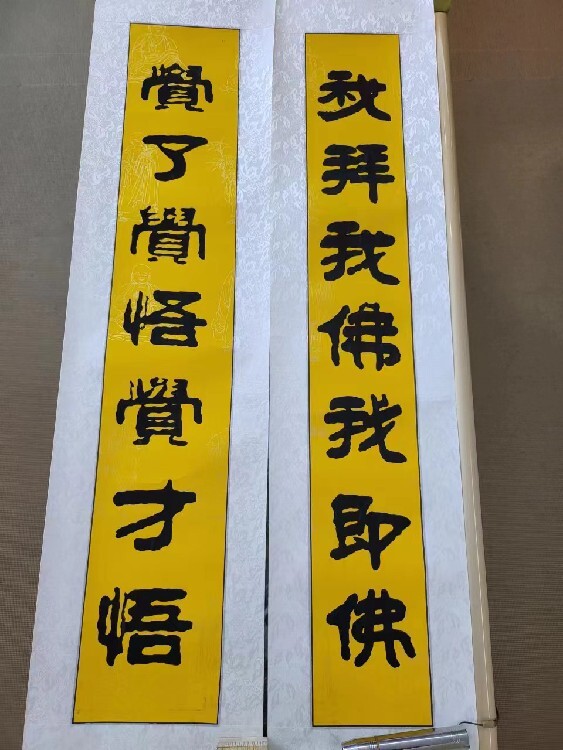 我拜我佛我即佛
覺了覺悟覺才悟